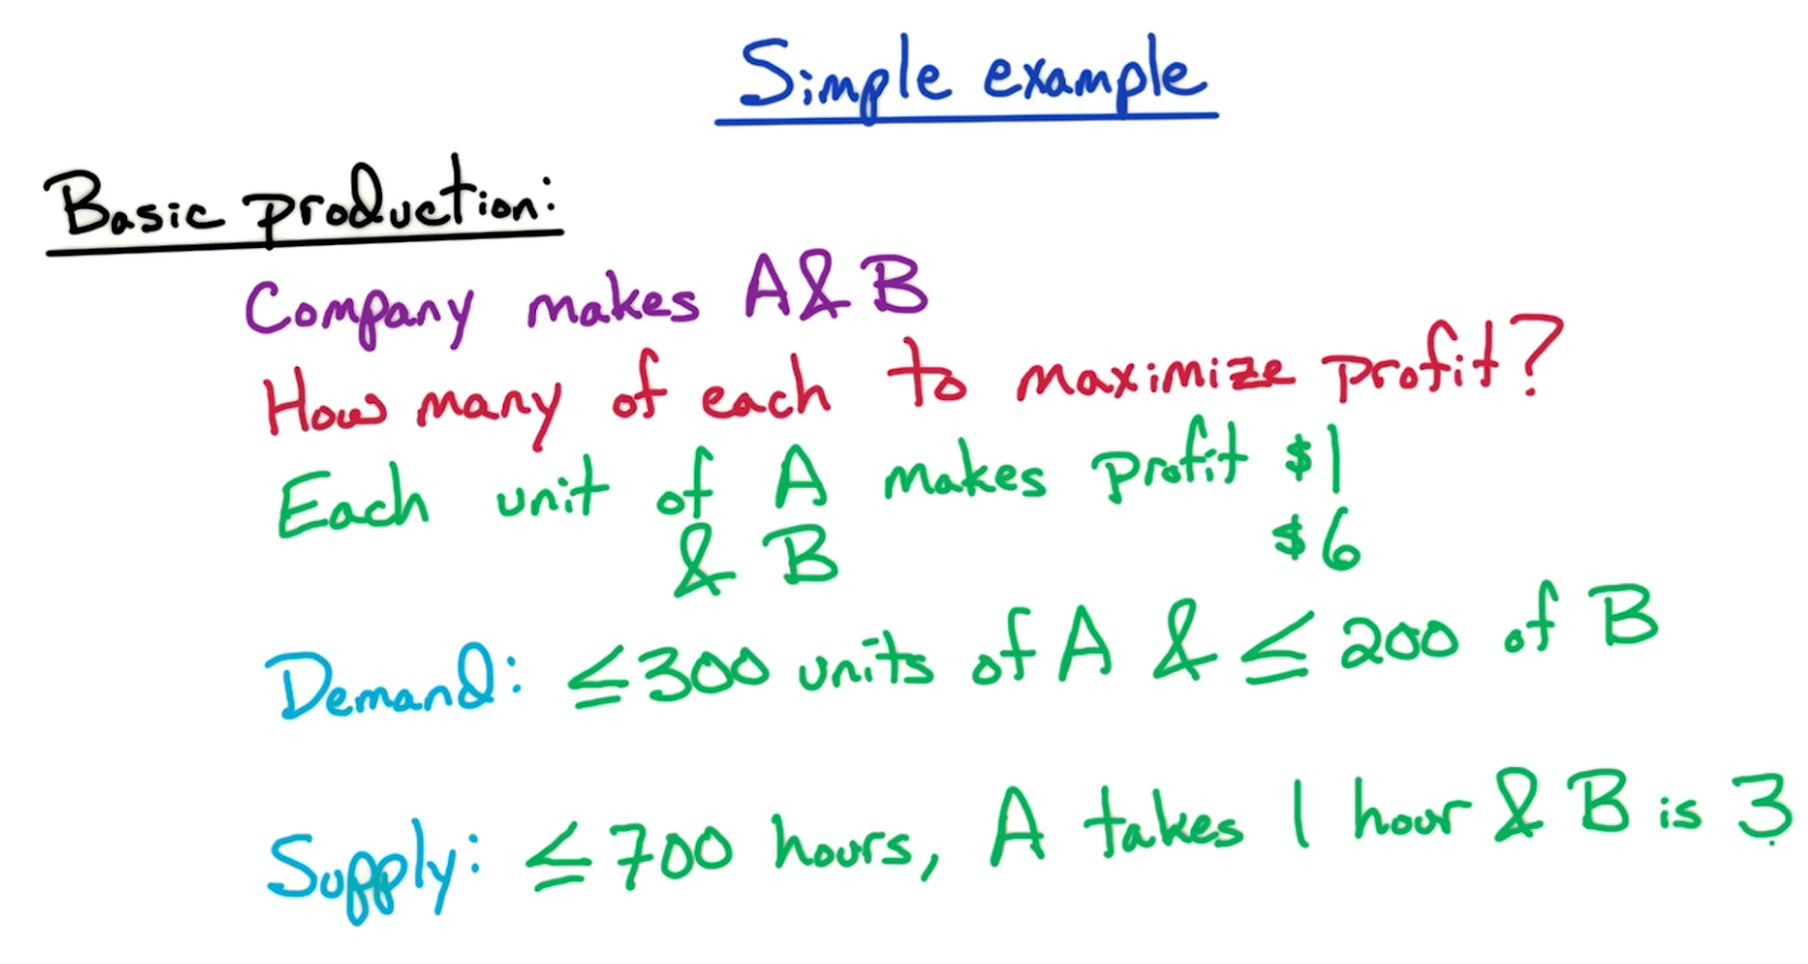 Simple example
Basic production:
Company makes A & B
How many of each to maximize profit?
Each unit of A makes profit $1
& B $6
Demand: ≤300 units of A & ≤ 200 of B
Supply: ≤700 hours, A takes 1 hour & B is 3